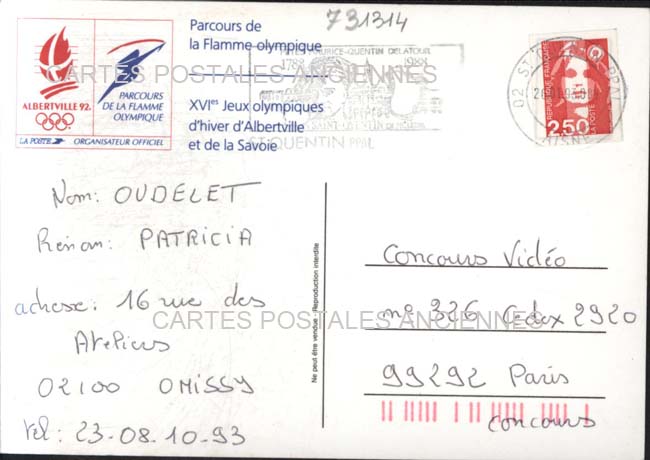 731314
Parcours de
la Flamme olympique
XVIes Jeux olympiques
d'hiver d'Albertville
et de la Savoie
ALBERTVILLE 92.
PARCOURS
DE LA FLAMME
OLYMPIQUE
LA POSTE ORGANISATEUR OFFICIEL
MAURICE-QUENTIN DELATOUR
1788 1988
ST QUENTIN PPAL
02 ST
AISNE
REPUBLIQUE FRANÇAISE
LA POSTE
2,50
CARTES POSTALES ANCIENNES
Nom: OUDELET
Prénom: PATRICIA
adresse: 16 rue des
Ateliers
02100 OMISSY
tel: 23-08-10-93
Ne peut être vendue - Reproduction interdite
Concours Vidéo
no 326 Cedex 2920
99292 Paris
concours
CARTES POSTALES ANCIENNES